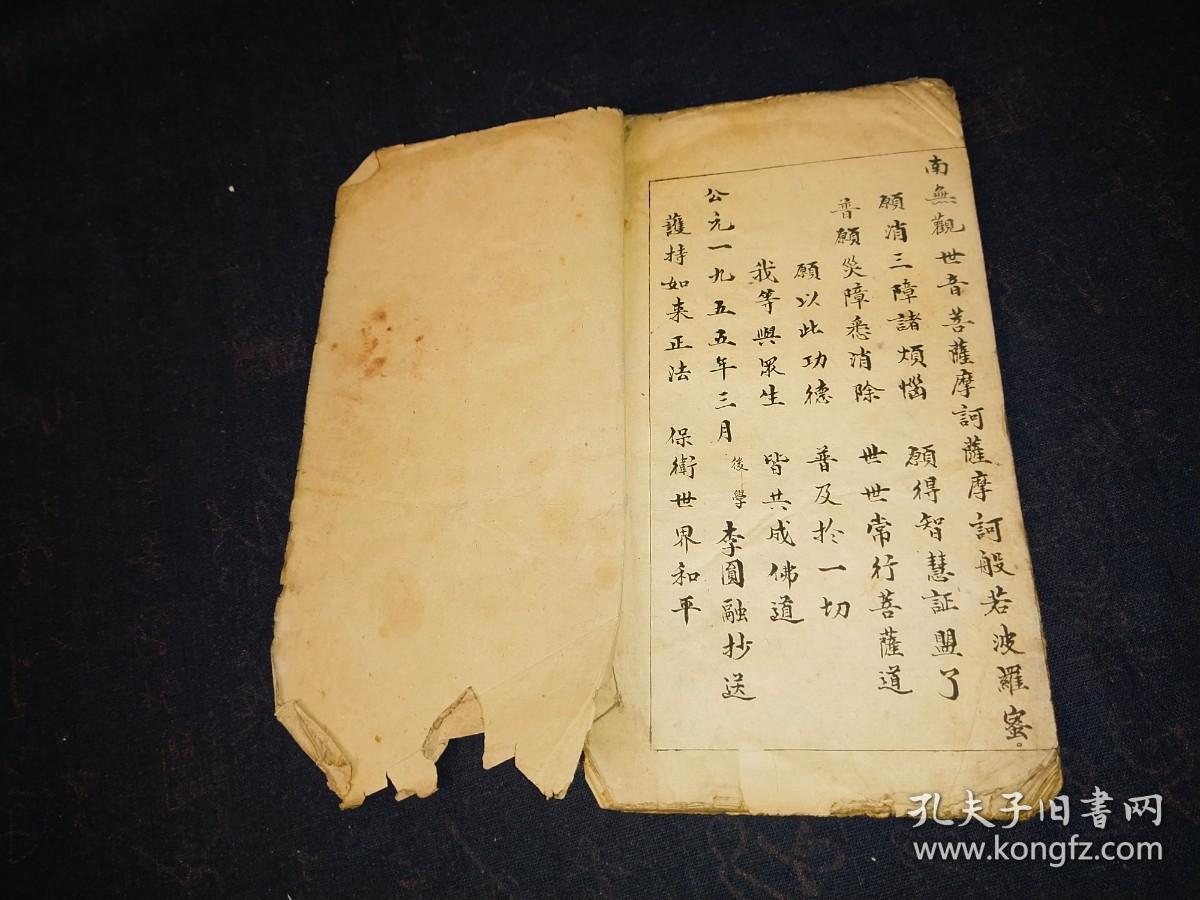 南無觀世音菩薩摩訶薩摩訶般若波羅蜜。
願消三障諸煩惱 願得智慧証盟了
普願災障悉消除 世世常行菩薩道
願以此功德 普及於一切
我等與眾生 皆共成佛道
公元一九五五年三月 後學 李圓融抄送
護持如来正法 保衛世界和平
孔夫子旧书网
www.kongfz.com